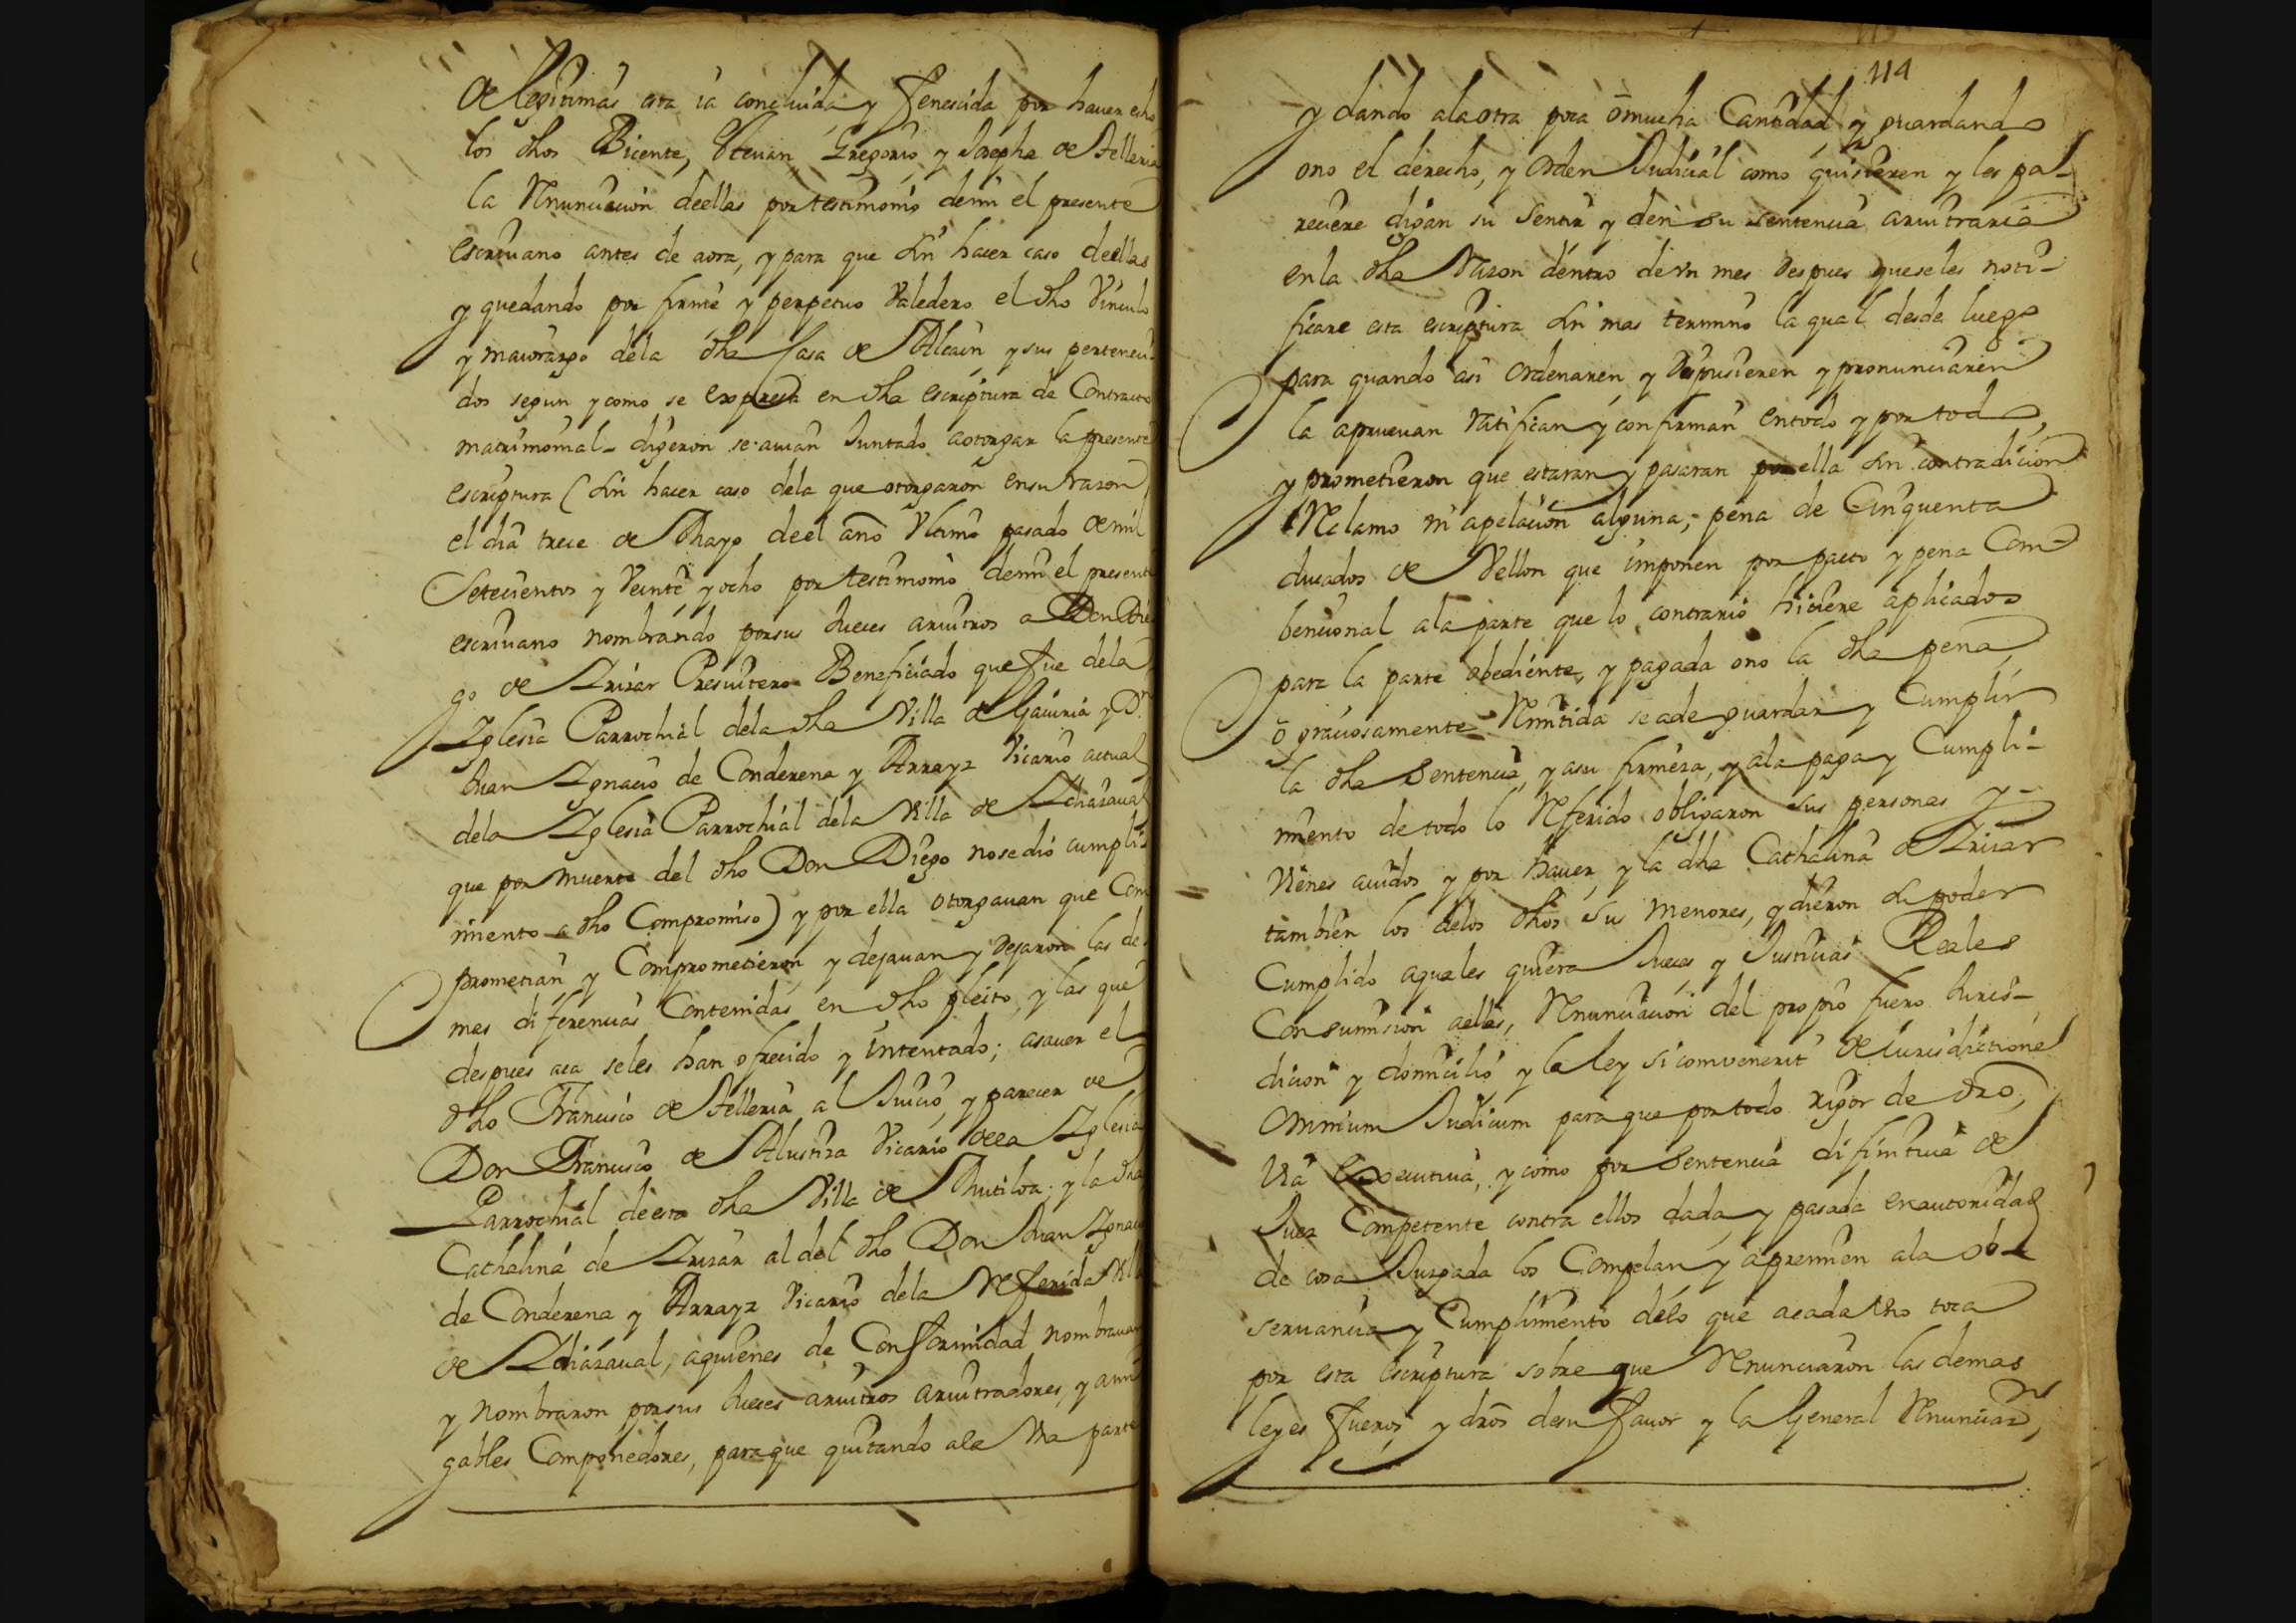 de legitimas esta ia concluida y fenescida por hauer echo
los dhos Bicente, Steuan, Gregorio, y Josepha de Telleria
la Renunciacion deellas por testimonio demi el presente
escriuano antes de aora, y para que sin hacer caso deellas
y quedando por firme y perpetuo Valedero el dho Vinculo
y maiorazgo dela dha Casa de Alcain y sus perteneci-
dos segun y como se expresa en dha escriptura de Contracto
matrimonial - digeron se auian Juntado aotorgar la presente
escriptura (sin hacer caso dela que otorgaron ensu razon
el dia trece de Mayo deel año Vltimo pasado de mil
Setecientos y Veinte y ocho por testimonio demi el presente
escriuano nombrando porsus Jueces aruitros a Don Die
go de Arizar Presuitero Beneficiado que fue dela
Iglesia Parrochial dela dha Villa de Gauiria y Dn
Juan Ignacio de Conderena y Arrayz Vicario actual
dela Iglesia Parrochial dela Villa de Ichasaual
que por muerte del dho Don Diego nosedio cumpli-
miento a dho Compromiso) y por ella otorgauan que Com
prometian y Comprometieron, y dejauan y dejaron las de
mas diferencias Contenidas en dho pleito, y las que
despues aca seles han ofrecido y intentado; asauer el
dho Francisco de Telleria al Juicio y parecer de
Don Francisco de Alustiza Vicario deea Iglesia
Parrochial deesta dha Villa de Mutiloa; y la dha
Cathalina de Arizar al del dho Don Juan Ignacio
de Conderena y Arrayz Vicario dela Referida Villa
de Ichasaual, aquienes de Conformidad nombrauan
y nombraron porsus Jueces aruitros aruitradores, y ami
gables Componedores, paraque quitando ala Vna parte
114
y dando alaotra poca ô mucha Cantidad, y guardando
ono el derecho, y orden Judicial como quisieren y les pa-
reciere digan su Sentir y den su sentencia aruitraria
enla dha Razon dentro deVn mes despues queseles noti-
ficare esta escriptura sin mas termino la qual desde luego
para quando asi ordenaren, y dispusieren y pronunciaren
la aprueuan ratifican y confirman entodo y por todo,
y prometieron que estaran y pasaran por ella sin contradicion
Reclamo ni apelacion alguna, pena de Cinquenta
ducados de Vellon que imponen por pacto y pena Com-
bencional ala parte que lo contrario hiciere aplicados
para la parte obediente, y pagada ono la dha pena
ô graciosamente Remitida seade guardar y Cumplir
la dha Sentencia, y asu firmeza, y ala paga y Cumpli-
miento detodo lo Referido obligaron sus personas y-
Vienes auidos y por hauer, y la dha Cathalina de Arizar
tambien los delos dhos sus menores, y dieron su poder
Cumplido aquales quiera Jueces y Justicias Reales
Con sumision aellas, Renunciacion del propio fuero Juris-
dicion y domicilio y la ley si combenerit de iurisdictione
omnium Judicum paraque portodo rigor de dro,
Via Executiua, y como por Sentencia difinitiua de
Juez Competente contra ellos dada, y pasada en autoridad
de cosa Juzgada los Compelan y apremien ala ob-
seruancia y Cumplimiento delo que acada Vno toca
por esta escriptura sobre que Renunciaron las demas
leyes fueros, y dros desu fauor y la General Renunciaon,